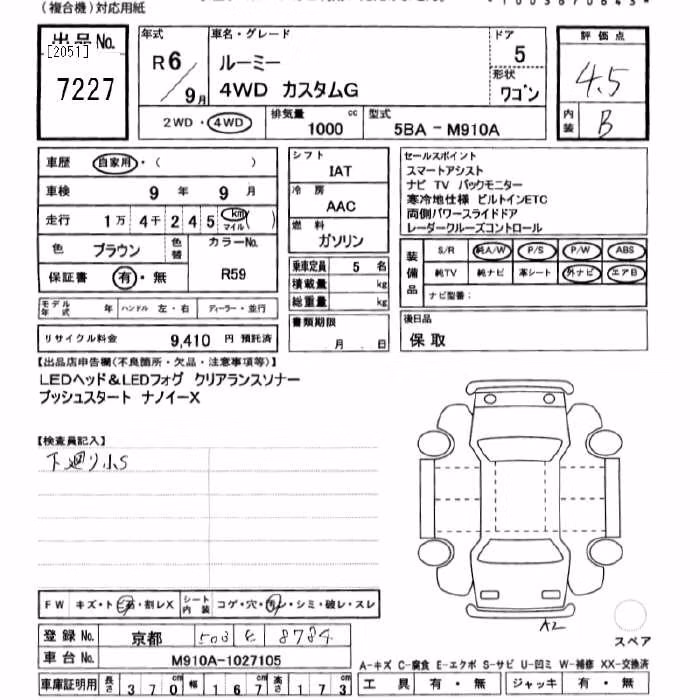 (複合機)対応用紙
出品No.
[2051]
7227
年式
R6/9月
車名・グレード
ルーミー
4WD カスタムG
ドア
5
形状
ワゴン
評価点
4.5
内装
B
2WD・4WD
排気量
1000 cc
型式
5BA-M910A
車歴 自家用・( )
車検 9年 9月
走行 1万4千245 km マイル ( )
色 ブラウン 色替
カラーNo.
R59
保証書 有・無
シフト
IAT
冷房
AAC
燃料
ガソリン
乗車定員 5名
積載量 kg
総重量 kg
書類期限
月 日
セールスポイント
スマートアシスト
ナビ TV バックモニター
寒冷地仕様 ビルトインETC
両側パワースライドドア
レーダークルーズコントロール
装備品
S/R 純A/W P/S P/W ABS
純TV 純ナビ 革シート 外ナビ エアB
ナビ型番:
モデル年式 年 ハンドル 左・右 ディーラー・並行
リサイクル料金 9,410 円 預託済
後日品
保取
【出品店申告欄(不良箇所・欠品・注意事項等)】
LEDヘッド&LEDフォグ クリアランスソナー
プッシュスタート ナノイーX
【検査員記入】
下廻り小S
FW キズ・トビ石・割レX
シート内装 コゲ・穴・汚レ・シミ・破レ・スレ
登録No. 京都 503 8784
車台No. M910A-1027105
車庫証明用 長さ 370cm 幅 167cm 高さ 173cm
A2
スペア
A-キズ C-腐食 E-エクボ S-サビ U-凹ミ W-補修 XX-交換済
工具 有・無 ジャッキ 有・無